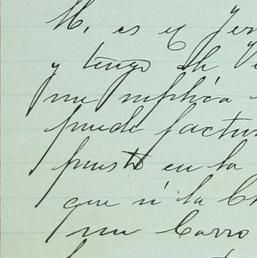 M. es q
y tengo de
me suplica
puede factur
puesto en la
que si la
un Carro